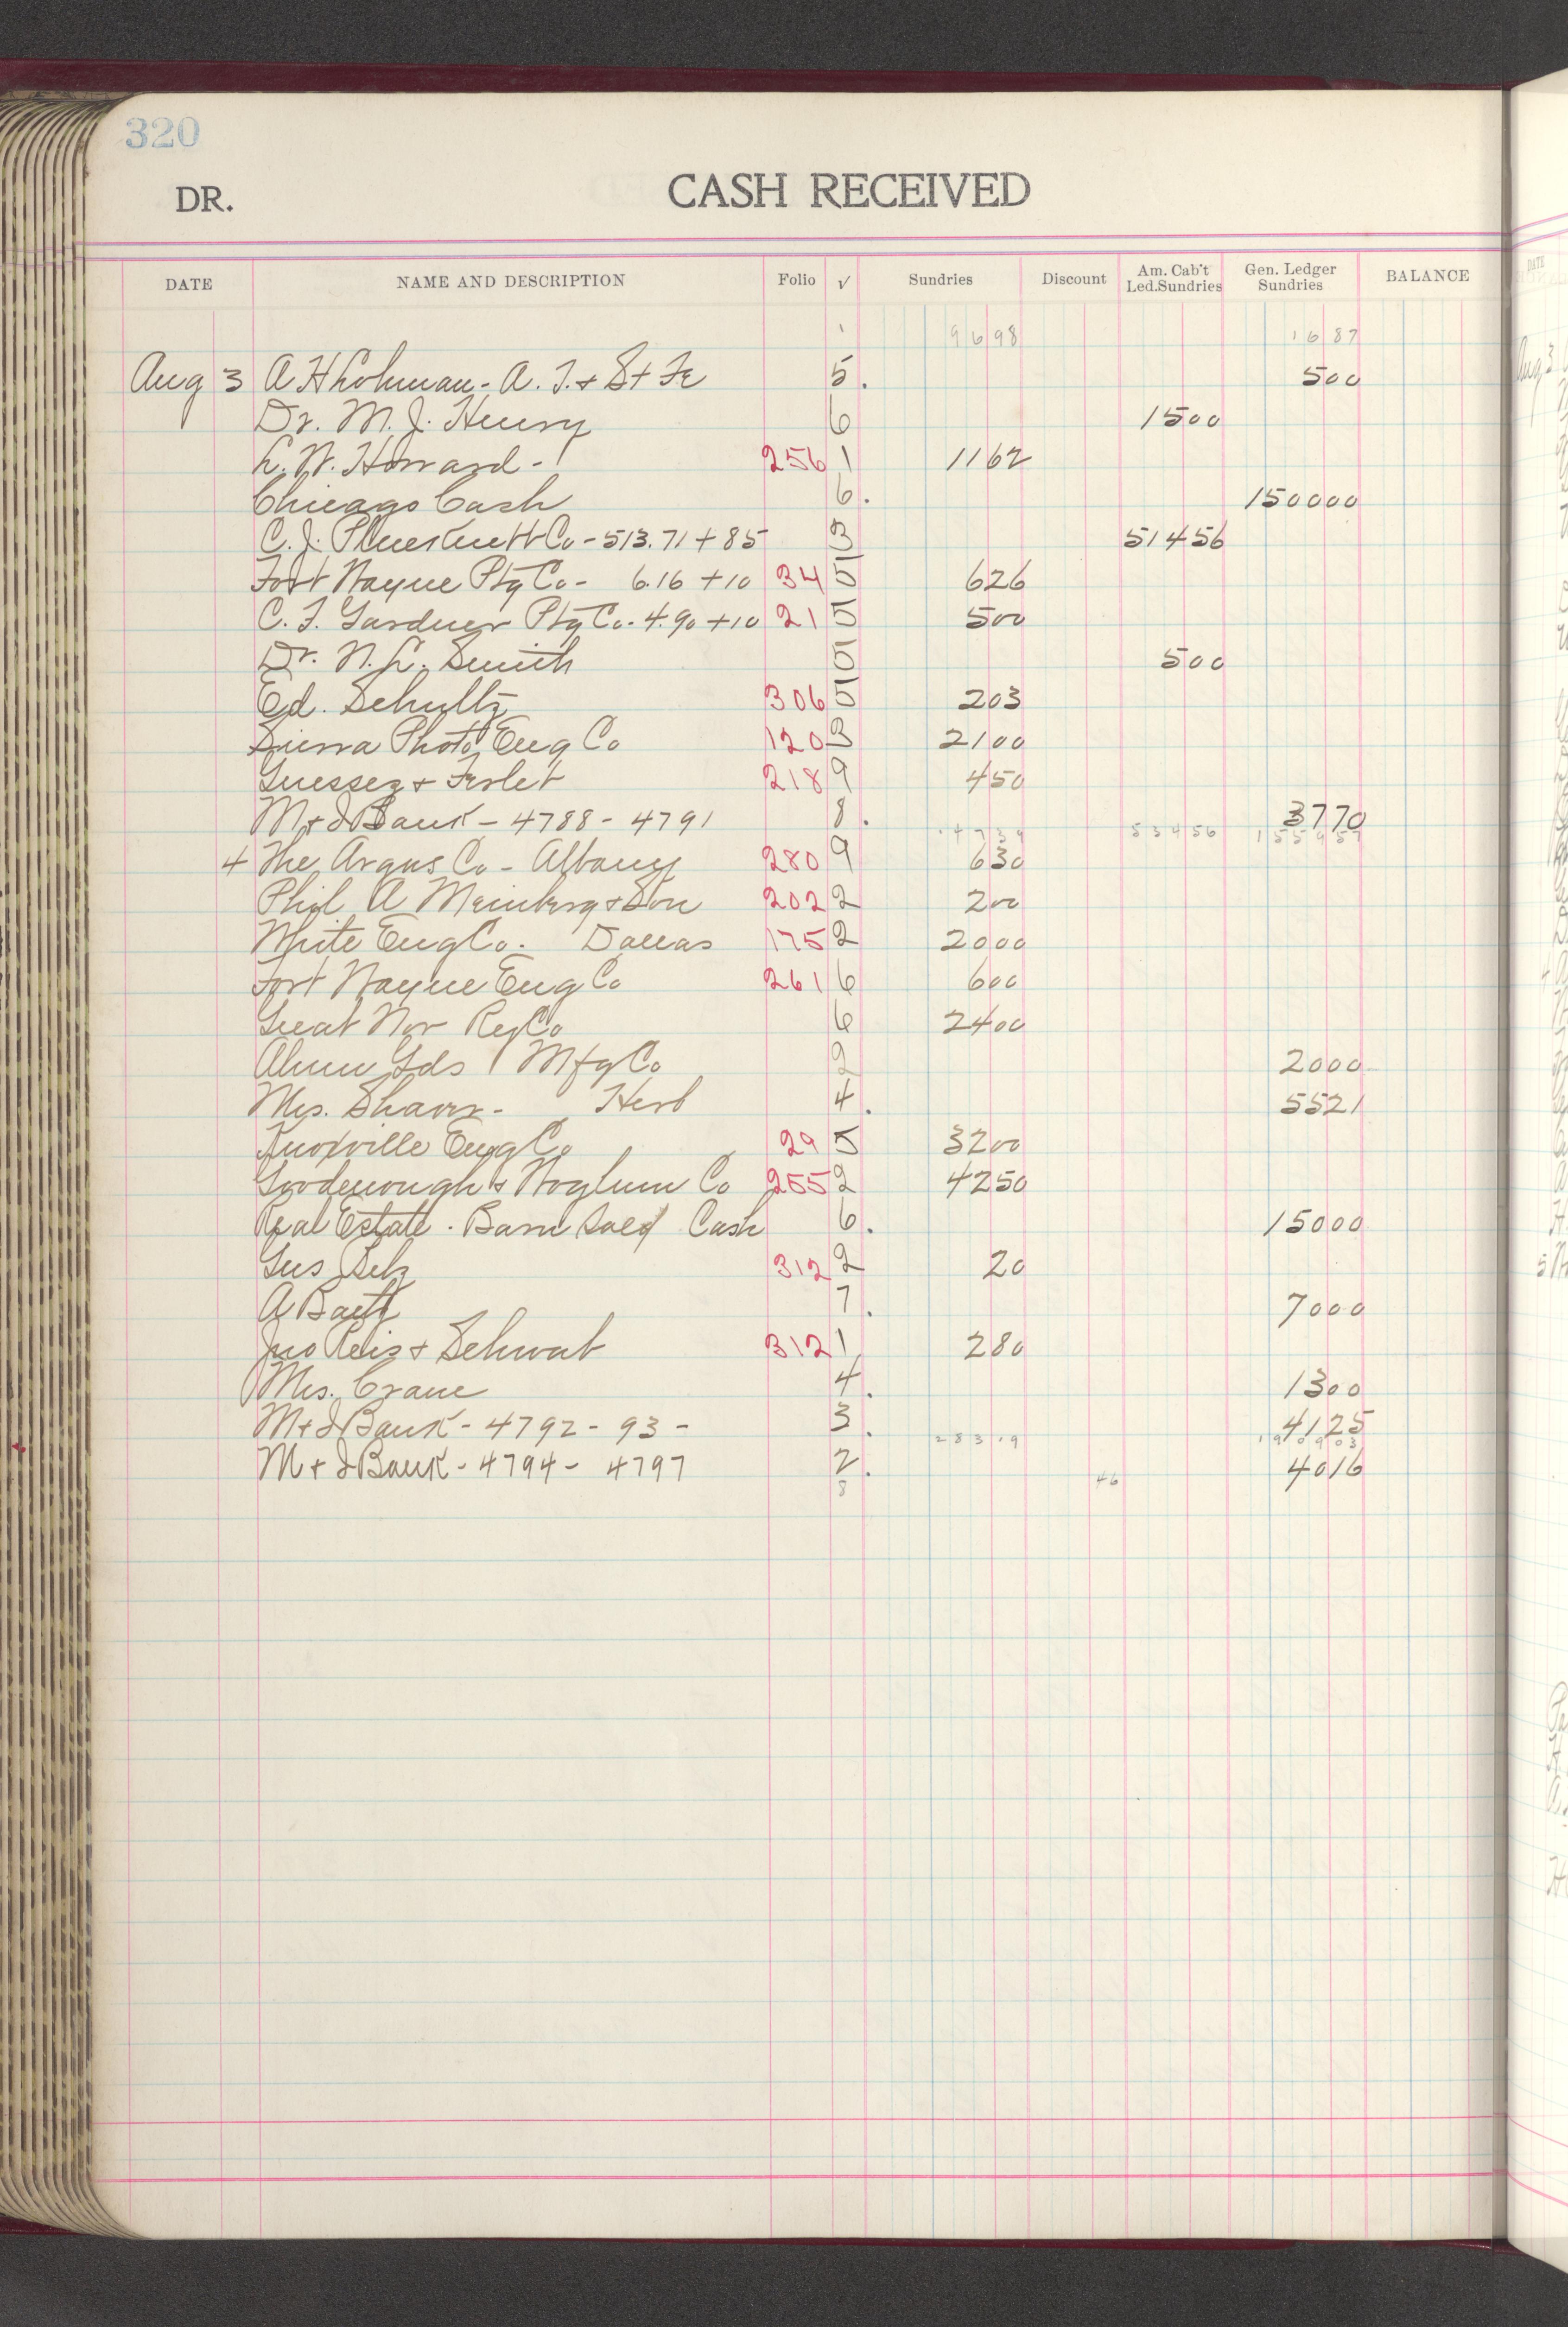 320
DR. CASH RECEIVED
DATE NAME AND DESCRIPTION Folio √ Sundries Discount Am. Cab't Led. Sundries Gen. Ledger Sundries BALANCE
9698 1687
Aug 3 A H Lohman - A. T. + S+ Fe 5. 500
Dr. M. J. Henry 6 1500
L. W. Howard - 256 1 1162
Chicago Cash 6. 150000
C. J. Co - 513.71 + 85 3 51456
Fort Wayne Ptg Co - 6.16 + 10 34 5 626
C. F. Gardner Ptg Co. 4.90 + 10 21 5 500
Dr. N. L. Smith 5 500
Ed. Schultz 306 5 203
Sierra Photo Eng Co 120 3 2100
Guessez + Ferlet 218 9 450
M + I Bank - 4788 - 4791 8. 3770
4739 53456 155957
4 The Argus Co - Albany 280 9 630
Phil A Meinberg + Son 202 2 200
White Eng Co. Dallas 175 2 2000
Fort Wayne Eng Co 261 6 600
Great Nor Ry Co 6 2400
Alum Gds Mfg Co 2 2000
Mrs. Shaver - Herb 4. 5521
Knoxville Eng Co 29 5 3200
Goodenough & Woglum Co 255 2 4250
Real Estate. Barn Sold Cash 6. 15000
Gus Selz 312 2 20
A Barth 7. 7000
Jno Reiz + Schwab 312 1 280
Mrs. Crane 4. 1300
M + I Bank - 4792 - 93 - 3. 4125
28319 190903
M + I Bank - 4794 - 4797 2. 4016
8 46